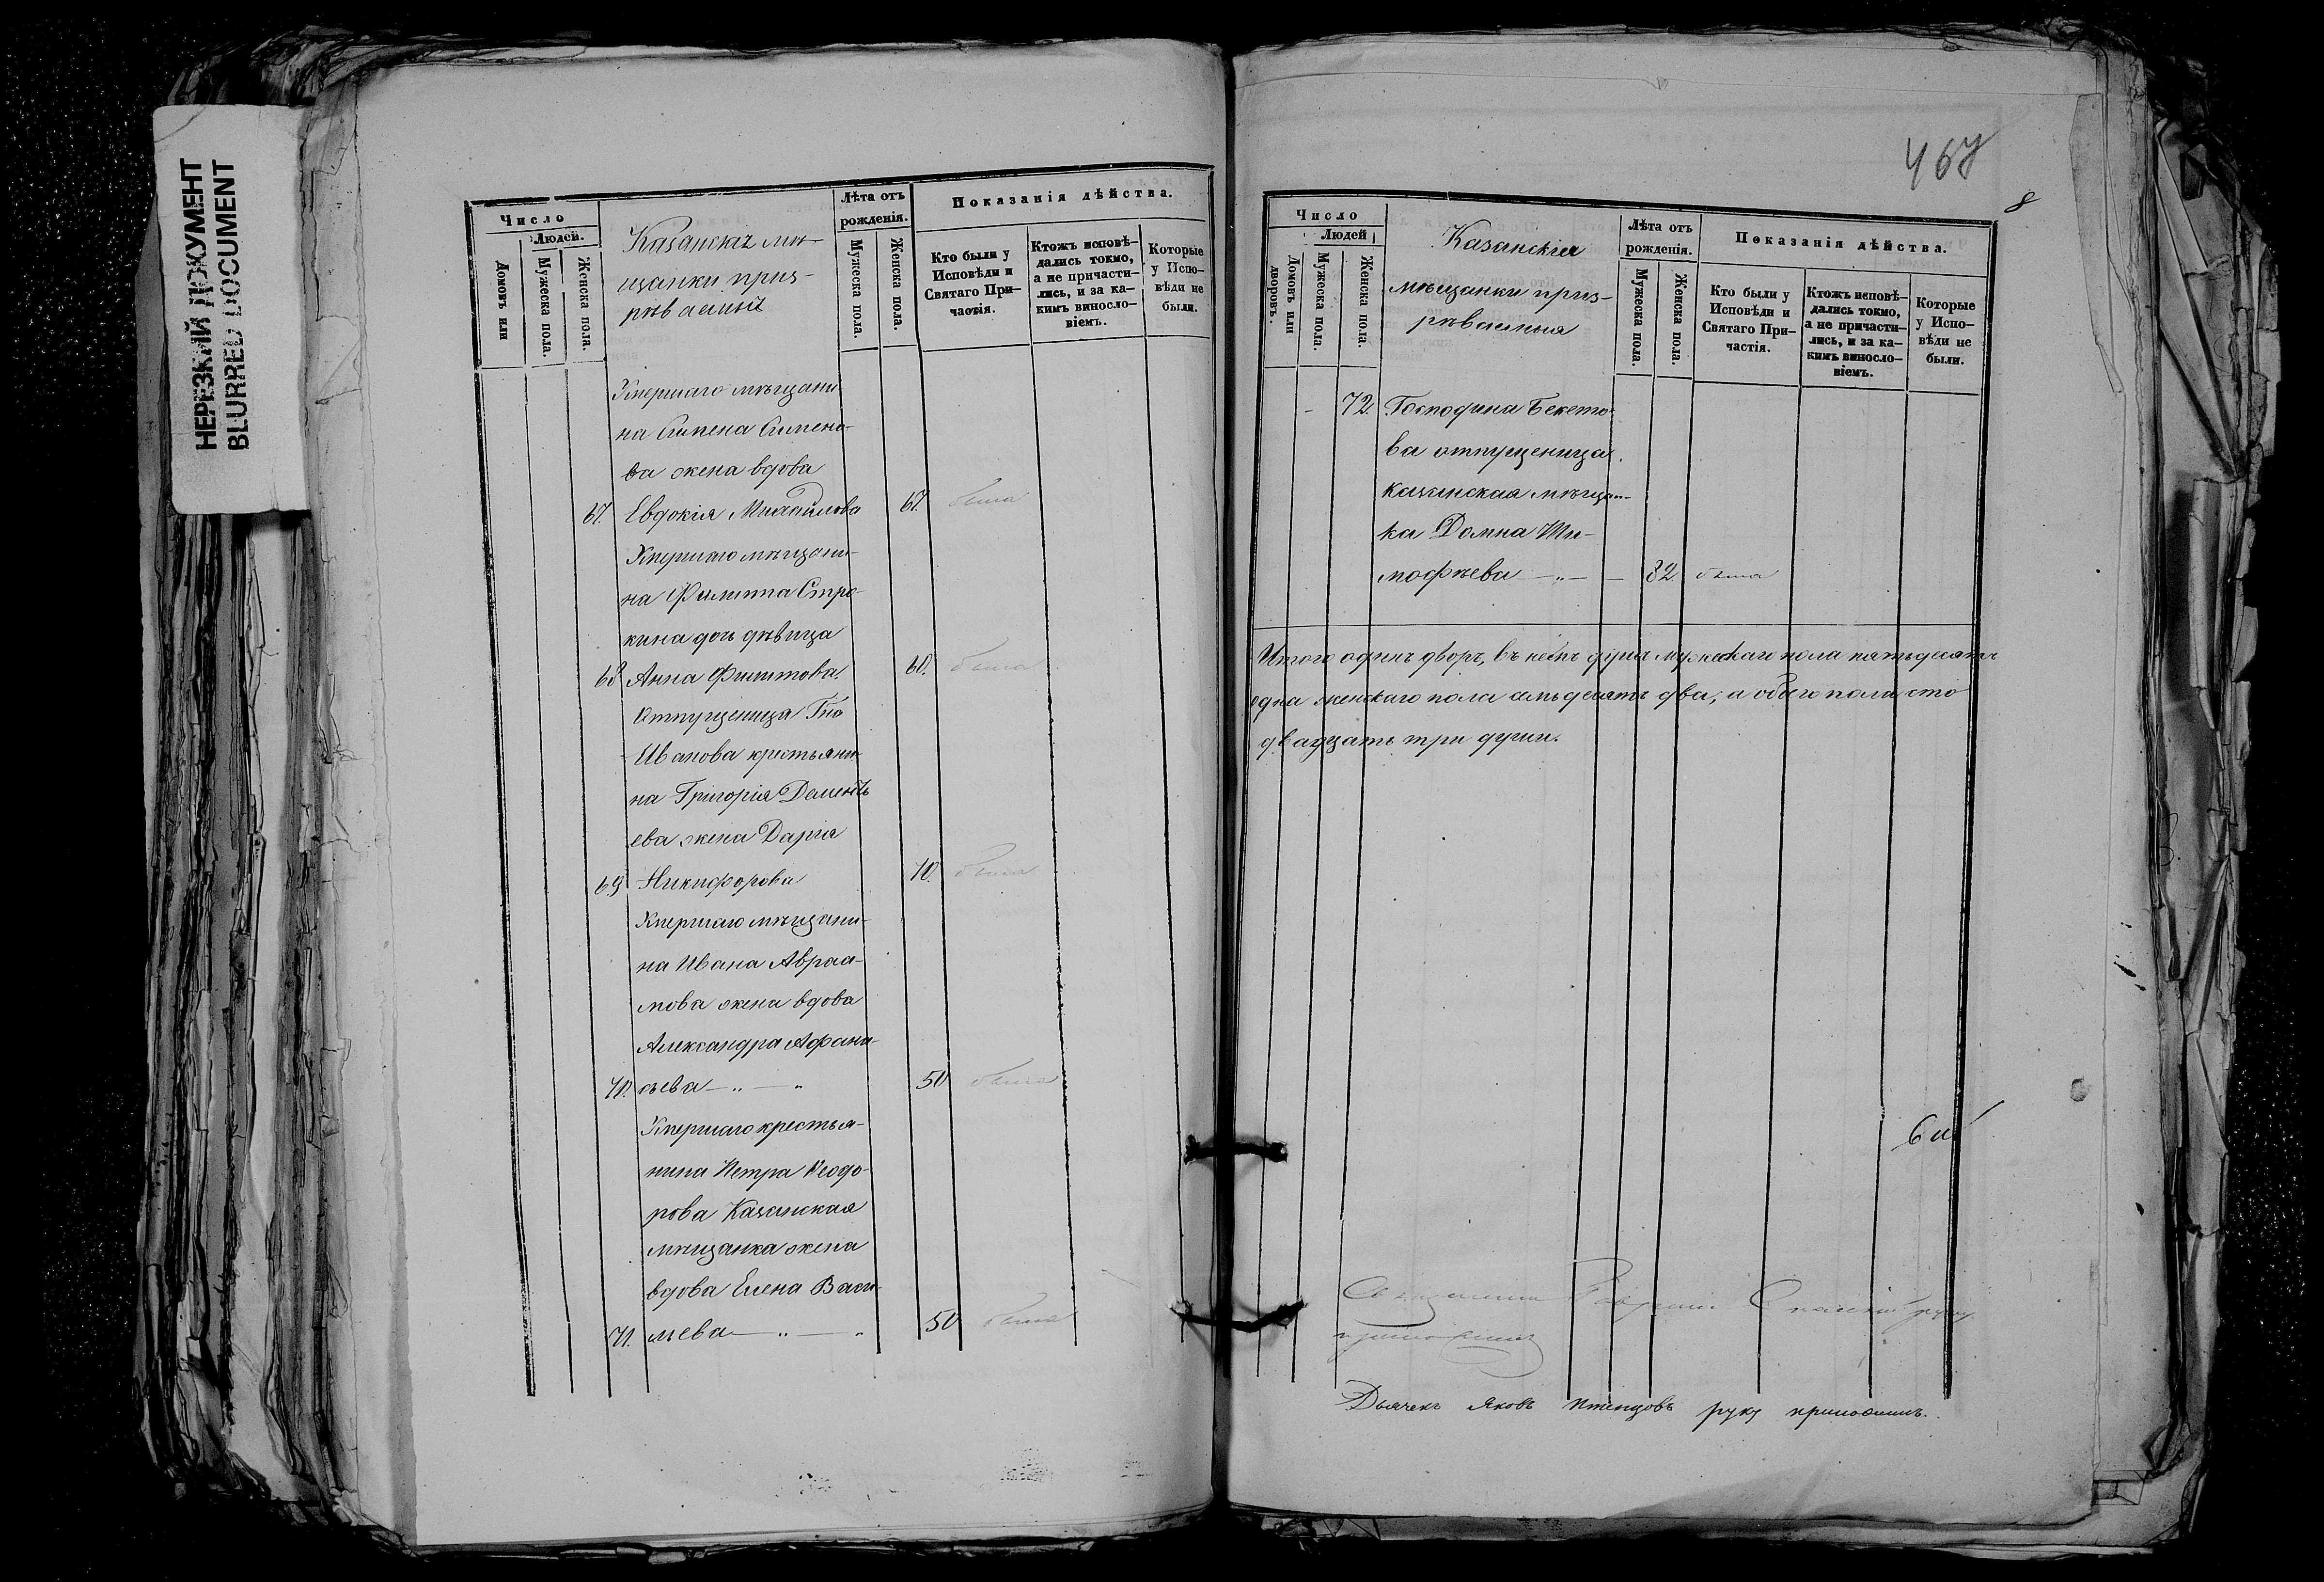 НЕРЕЗКИЙ ДОКУМЕНТ
BLURRED DOCUMENT
Число
Людей.
Домовъ или
Мужеска пола.
Женска пола.
Казанскіъ мѣ-
щанки приз-
рѣваемыя
Лѣта отъ
рожденія.
Мужеска пола.
Женска пола.
Показанія дѣйства.
Кто были у
Исповѣди и
Святаго При-
частія.
Ктожъ исповѣ-
дались токмо,
а не причасти-
лись, и за ка-
кимъ виносло-
віемъ.
Которые
у Испо-
вѣди не
были.
Умершаго мѣщани
на Симена Симено-
ва жена вдова
67. Евдокія Михайлова 67. была
Умершаго мѣщани-
на Филиппа Стро-
кина дочь дѣвица
68 Анна Филиппова. 60. была
Отпущеница Гна
Иванова крестьяни-
на Григорія Дементь
ева жена Дарія
69 Никифорова 70. была
Умершаго мѣщани-
на Ивана Авраа-
мова жена вдова
Александра Афана-
70. сьева — „ — „ 50 была
Умершаго крестья-
нина Петра Ѳеодо-
рова Казанская
мѣщанка жена
вдова Елена Васи-
71. льева — „ — „ 50 была
467
8
Число
Людей
Домовъ или
дворовъ.
Мужеска пола.
Женска пола.
Казанскія
мѣщанки приз-
рѣваемыя
Лѣта отъ
рожденія.
Мужеска пола.
Женска пола.
Показанія дѣйства.
Кто были у
Исповѣди и
Святаго При-
частія.
Ктожъ исповѣ-
дались токмо,
а не причасти-
лись, и за ка-
кимъ виносло-
віемъ.
Которые
у Испо-
вѣди не
были.
- 72. Господина Бекето-
ва отпущеница
Казанская мѣщан-
ка Домна Ти-
мофѣева — „ — — 82 была
Итого одинъ дворъ, въ немъ душъ мужескаго пола пятьдесятъ
одна женскаго пола семьдесятъ два, а обоего пола сто
двадцать три души.
Священникъ Спасскій руку
приложилъ
Дьячекъ Яковъ Птенцовъ руку приложилъ.